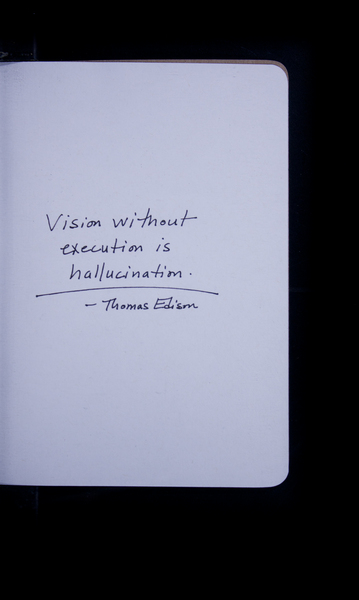 Vision without
execution is
hallucination.
- Thomas Edison